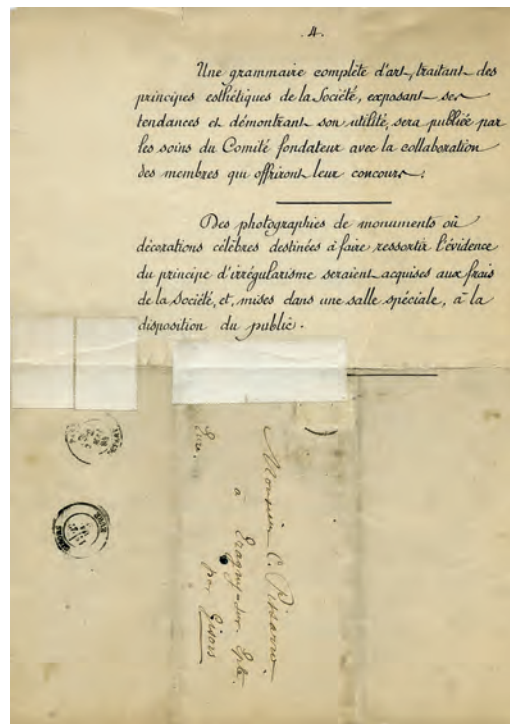 .4.
Une grammaire complète d'art, traitant des
principes esthétiques de la Société, exposant ses
tendances et démontrant son utilité, sera publiée par
les soins du Comité fondateur avec la collaboration
des membres qui offriront leur concours.
Des photographies de monuments où
décorations célèbres destinées à faire ressortir l'évidence
du principe d'irrégularisme seraient acquises aux frais
de la Société, et, mises dans une salle spéciale, à la
disposition du public.
Monsieur C. Pissarro
à Eragny-sur-Epte
par Gisors
Eure.